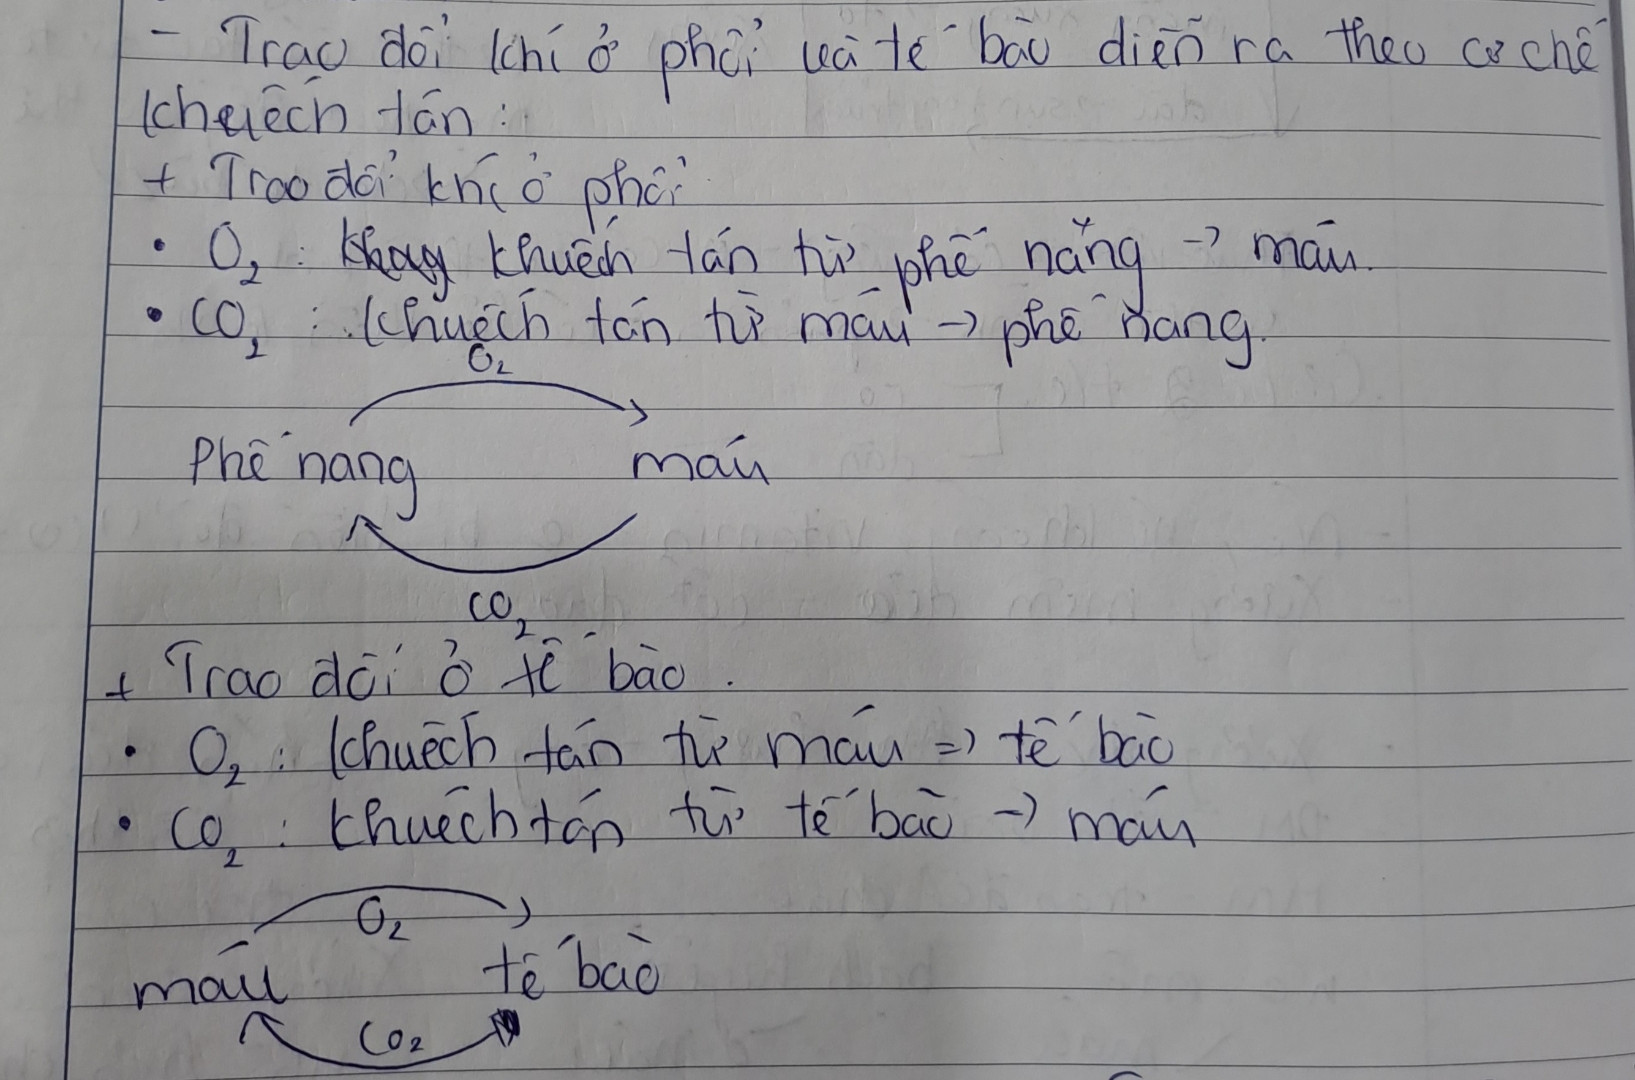 - Trao đổi khí ở phổi và tế bào diễn ra theo cơ chế
khuếch tán :
+ Trao đổi khí ở phổi
• O₂ : khuếch tán từ phế nang → máu.
• CO₂ : khuếch tán từ máu → phế nang.
O₂
Phế nang máu
CO₂
+ Trao đổi ở tế bào .
• O₂ : khuếch tán từ máu => tế bào
• CO₂ : khuếch tán từ tế bào → máu
O₂
máu tế bào
CO₂